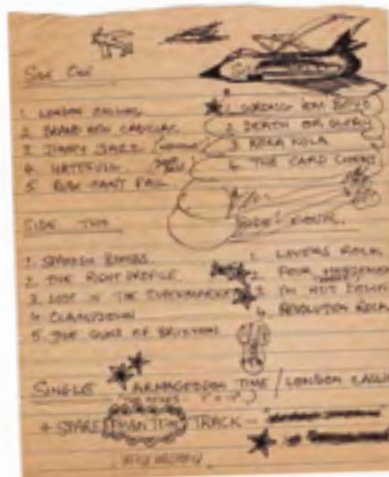 Side One
1. LONDON CALLING
2. BRAND NEW CADILLAC
3. JIMMY JAZZ
4. HATEFULL
5. RUDY CANT FAIL
1. 'EM BOYO
2. DEATH OR GLORY
3. KOKA KOLA
4. THE CARD CHEAT
SIDE TWO
1. SPANISH BOMBS
2. THE RIGHT PROFILE
3. LOST IN THE SUPERMARKET
4. CLAMPDOWN
5. THE GUNS OF BRIXTON
SIDE FOUR
1. LOVERS ROCK
2. FOUR HORSEMEN
3. I'M NOT DOWN
4. REVOLUTION ROCK
SINGLE ARMAGEDDON TIME / LONDON CALLI
+ SPARE PHANTOM TRACK -